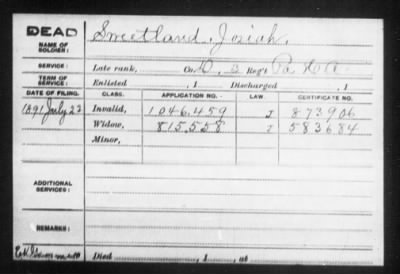 DEAD
NAME OF SOLDIER: Sweetland, Josiah.
SERVICE: Late rank, Co. D, 3 Reg't Pa. H.A.
TERM OF SERVICE: Enlisted , 1 Discharged , 1
DATE OF FILING. CLASS. APPLICATION NO. LAW. CERTIFICATE NO.
1891 July 22 Invalid, 1046,459 J 873906
Widow, 815,558 J 583684
Minor,
ADDITIONAL SERVICES:
REMARKS:
Died , 1 , at